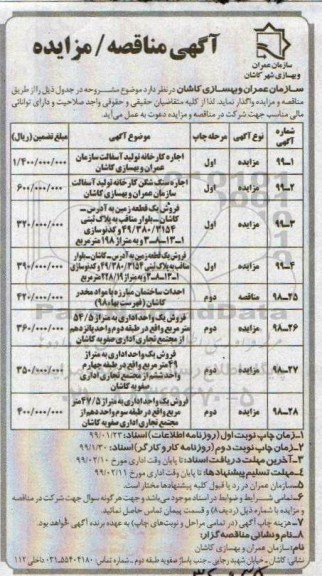 آگهی مناقصه/ مزایده
سازمان عمران
و بهسازی شهر کاشان
سازمان عمران وبهسازی کاشان در نظر دارد موضوع مشروحه در جدول ذیل را از طریق
مناقصه و مزایده واگذار نماید. لذا از کلیه متقاضیان حقیقی و حقوقی واجد صلاحیت و دارای توانائی
مالی مناسب جهت شرکت در مناقصه و مزایده دعوت به عمل می‌آید.
شماره آگهی نوع آگهی مرحله چاپ موضوع آگهی مبلغ تضمین (ریال)
۱ــ۹۹ مزایده اول اجاره کارخانه تولید آسفالت سازمان
عمران و بهسازی کاشان ۱/۴۰۰/۰۰۰/۰۰۰
۲ــ۹۹ مزایده اول اجاره سنگ شکن کارخانه تولید آسفالت
سازمان عمران و بهسازی کاشان ۶۰۰/۰۰۰/۰۰۰
۳ــ۹۹ مزایده اول فروش یک قطعه زمین به آدرس ــ
کاشان ــ بلوار مناقب پلاک ثبتی
۴۹/۳۸۰/۳۱۵۴ و کد نوسازی
۱ــ۱۳ــ۸ــ۳ و به متراژ ۱۹۸ مترمربع ۳۲۰/۰۰۰/۰۰۰
۴ــ۹۹ مزایده اول فروش یک قطعه زمین به آدرس ــ کاشان ــ بلوار
مناقب پلاک ثبتی ۴۹/۳۸۰/۳۱۵۴ و کد نوسازی
۱ــ۱۳ــ۸ به متراژ ۲۲۸/۱۹ مترمربع ۳۹۰/۰۰۰/۰۰۰
۲۵ــ۹۸ مناقصه دوم احداث ساختمان مبارزه با مواد مخدر
کاشان (فهرست بهاء ۹۸) ۴۲۰/۰۰۰/۰۰۰
۲۶ــ۹۸ مزایده دوم فروش یک واحد اداری به متراژ ۵۴/۵
متر مربع واقع در طبقه دوم واحد پانزدهم
از مجتمع تجاری اداری صفویه کاشان ۳۶۰/۰۰۰/۰۰۰
۲۷ــ۹۸ مزایده دوم فروش یک واحد اداری به متراژ
۴۹ متر مربع واقع در طبقه چهارم
واحد ششم از مجتمع تجاری اداری
صفویه کاشان ۳۵۰/۰۰۰/۰۰۰
۲۸ــ۹۸ مزایده دوم فروش یک واحد اداری به متراژ ۴۷/۵ متر
مربع واقع در طبقه سوم واحد دهم از
مجتمع تجاری اداری صفویه کاشان ۴۰۰/۰۰۰/۰۰۰
۱ــ زمان چاپ نوبت اول (روزنامه اطلاعات) اسناد: ۹۹/۰۱/۲۳
۲ــ زمان چاپ نوبت دوم (روزنامه کار و کارگر) اسناد: ۹۹/۱/۳۰
۳ــ آخرین مهلت دریافت اسناد: تا پایان وقت اداری مورخ ۹۹/۰۲/۱۰
۴ــ مهلت تسلیم پیشنهادها: تا پایان وقت اداری مورخ ۹۹/۰۲/۱۱
۵ــ سازمان عمران در رد یا قبول کلیه پیشنهادها مختار است.
۶ــ تمامی شرایط و ضوابط در اسناد موجود می‌باشد و جهت هر گونه سوال جهت شرکت در مناقصه
و مزایده با شماره ذیل (ردیف ۸) و قسمت پیمان تماس حاصل نمائید.
۷ــ هزینه چاپ آگهی (در تمامی مراحل و نوبت‌های چاپ) به عهده برنده آگهی خواهد بود.
۸ــ نام و نشانی مناقصه گزار:
نام: سازمان عمران و بهسازی کاشان
نشانی: کاشان ــ خیابان شهید رجایی ــ جنب پاساژ صفویه طبقه دوم ــ شماره تماس: ۵۵۴۰۴۱۸۰ــ۰۳۱ داخلی ۱۱۲